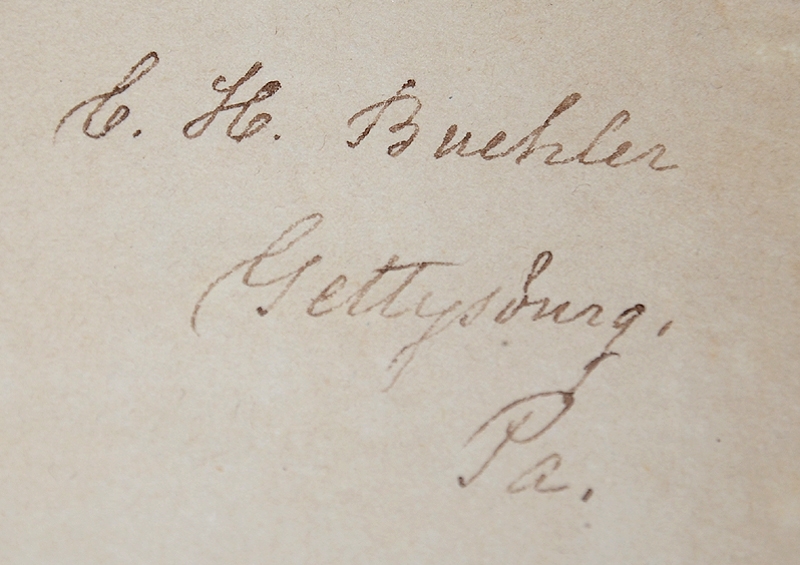 C. H. Buehler
Gettysburg.
Pa.